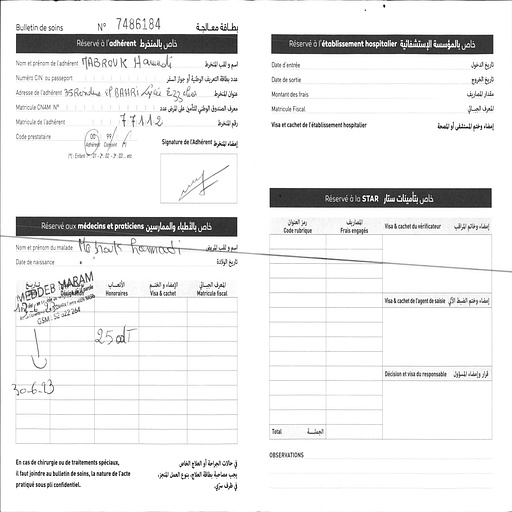 Bulletin de soins N° 7486184 بطاقة معالجة
Réservé à l'adhérent خاص بالمنخرط
Nom et prénom de l'adhérent MABROUK Hamadi اسم و لقب المنخرط
Numéro CIN ou passeport عدد بطاقة التعريف الوطنية أو جواز السفر
Adresse de l'adhérent عنوان المنخرط
Matricule CNAM N° معرف الصندوق الوطني للتأمين على المرض عدد
Matricule de l'adhérent 77112 رقم المنخرط
Code prestataire 00 99 (*)
Adhérent Conjoint
(*) : Enfant 1 - 01 - 2 - 02 - 3 - 03 ... etc
Signature de l'Adhérent إمضاء المنخرط
Réservé aux médecins et praticiens خاص بالأطباء والممارسين
Nom et prénom du malade اسم و لقب المريض
Date de naissance تاريخ الولادة
Honoraires الأتعاب
Visa & cachet الإمضاء و الختم
Matricule fiscal المعرف الجبائي
MEDDEB MARAM
30-6-23
En cas de chirurgie ou de traitements spéciaux,
il faut joindre au bulletin de soins, la nature de l'acte
pratiqué sous pli confidentiel.
في حالات الجراحة أو العلاج الخاص
يجب مصاحبة بطاقة العلاج، بنوع العمل المنجز،
في ظرف سرّي.
Réservé à l'établissement hospitalier خاص بالمؤسسة الإستشفائية
Date d'entrée تاريخ الدخول
Date de sortie تاريخ الخروج
Montant des frais مقدار المصاريف
Matricule Fiscal المعرف الجبائي
Visa et cachet de l'établissement hospitalier إمضاء وختم المستشفى أو المصحة
Réservé à la STAR خاص بتأمينات ستار
رمز العنوان
Code rubrique
المصاريف
Frais engagés
Visa & cachet du vérificateur إمضاء وخاتم المراقب
Visa & cachet de l'agent de saisie إمضاء وختم الضبط الآلي
Décision et visa du responsable قرار وإمضاء المسؤول
Total الجملة
OBSERVATIONS